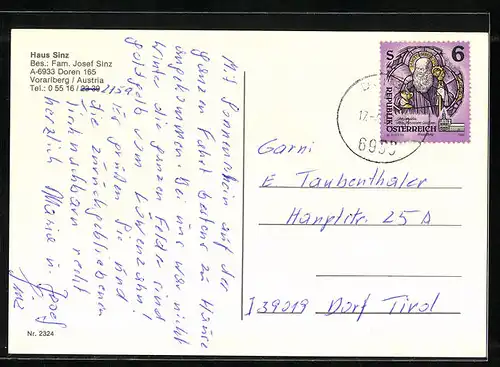 Haus Sinz
Bes.: Fam. Josef Sinz
A-6933 Doren 165
Vorarlberg / Austria
Tel.: 0 55 16 / 23 39 2159
Mit Sonnenschein auf der
ganzen Fahrt bestens zu Hause
angekommen. Bei uns war nicht
Winter die ganzen Felder sind
goldgelb vom Löwenzahn!
Wir grüßen Sie und
die zurückgebliebenen
Tischnachbarn recht
herzlich Maria u. Josef
Sinz
Nr. 2324
S 6
REPUBLIK
ÖSTERREICH
12.
6933
Garni
E Taubenthaler
Hauptstr. 25 A
I 39019 Dorf Tirol